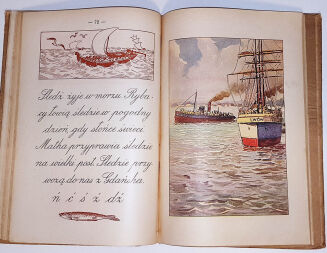 — 72 —
Śledź żyje w morzu. Ryba-
cy łowią śledzie w pogodny
dzień, gdy słońce świeci.
Matka przyprawia śledzie
na wielki post. Śledzie przy-
wożą do nas z Gdańska.
ń ć ś ź dź